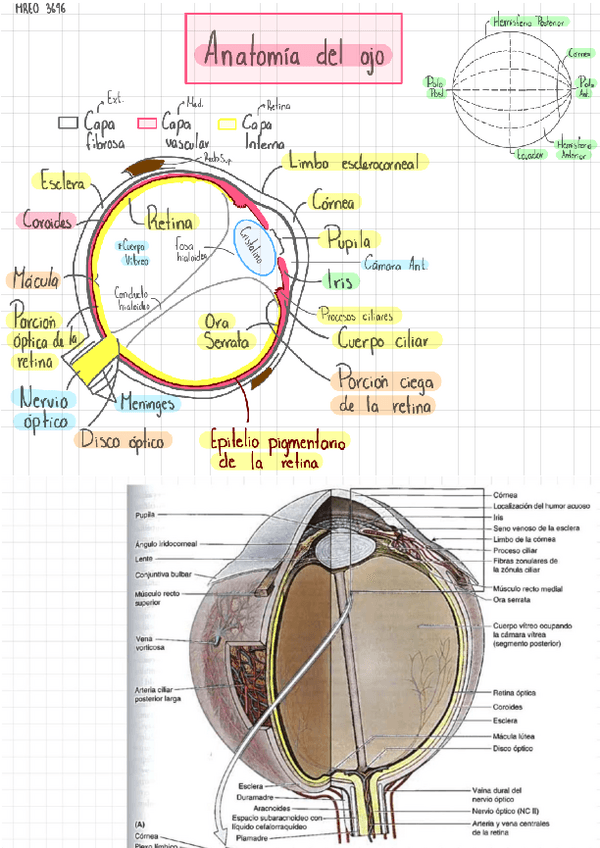 MREO 3696
Anatomía del ojo
Hemisferio Posterior
Córnea
Polo
Post.
Polo
Ant.
Hemisferio
Anterior
Ecuador
Ext.
Capa
fibrosa
Med.
Capa
vascular
Retina
Capa
Interna
Recto Sup
Limbo esclerocorneal
Esclera
Córnea
Coroides
Retina
Pupila
*Cuerpo
Vítreo
fosa
hialoidea
Cristalino
Cámara Ant.
Iris
Mácula
Conducto
hialoideo
Procesos ciliares
Porción
óptica de la
retina
Ora
Serrata
Cuerpo ciliar
Porción ciega
de la retina
Nervio
óptico
Meninges
Disco óptico
Epitelio pigmentario
de la retina
Pupila
Ángulo iridocorneal
Lente
Conjuntiva bulbar
Músculo recto
superior
Vena
vorticosa
Arteria ciliar
posterior larga
Córnea
Localización del humor acuoso
Iris
Seno venoso de la esclera
Limbo de la córnea
Proceso ciliar
Fibras zonulares de
la zónula ciliar
Músculo recto medial
Ora serrata
Cuerpo vítreo ocupando
la cámara vítrea
(segmento posterior)
Retina óptica
Coroides
Esclera
Mácula lútea
Disco óptico
Esclera
Duramadre
Aracnoides
Espacio subaracnoideo con
líquido cefalorraquídeo
Piamadre
Vaina dural del
nervio óptico
Nervio óptico (NC II)
Arteria y vena centrales
de la retina
(A)
Córnea
Plexo límbico